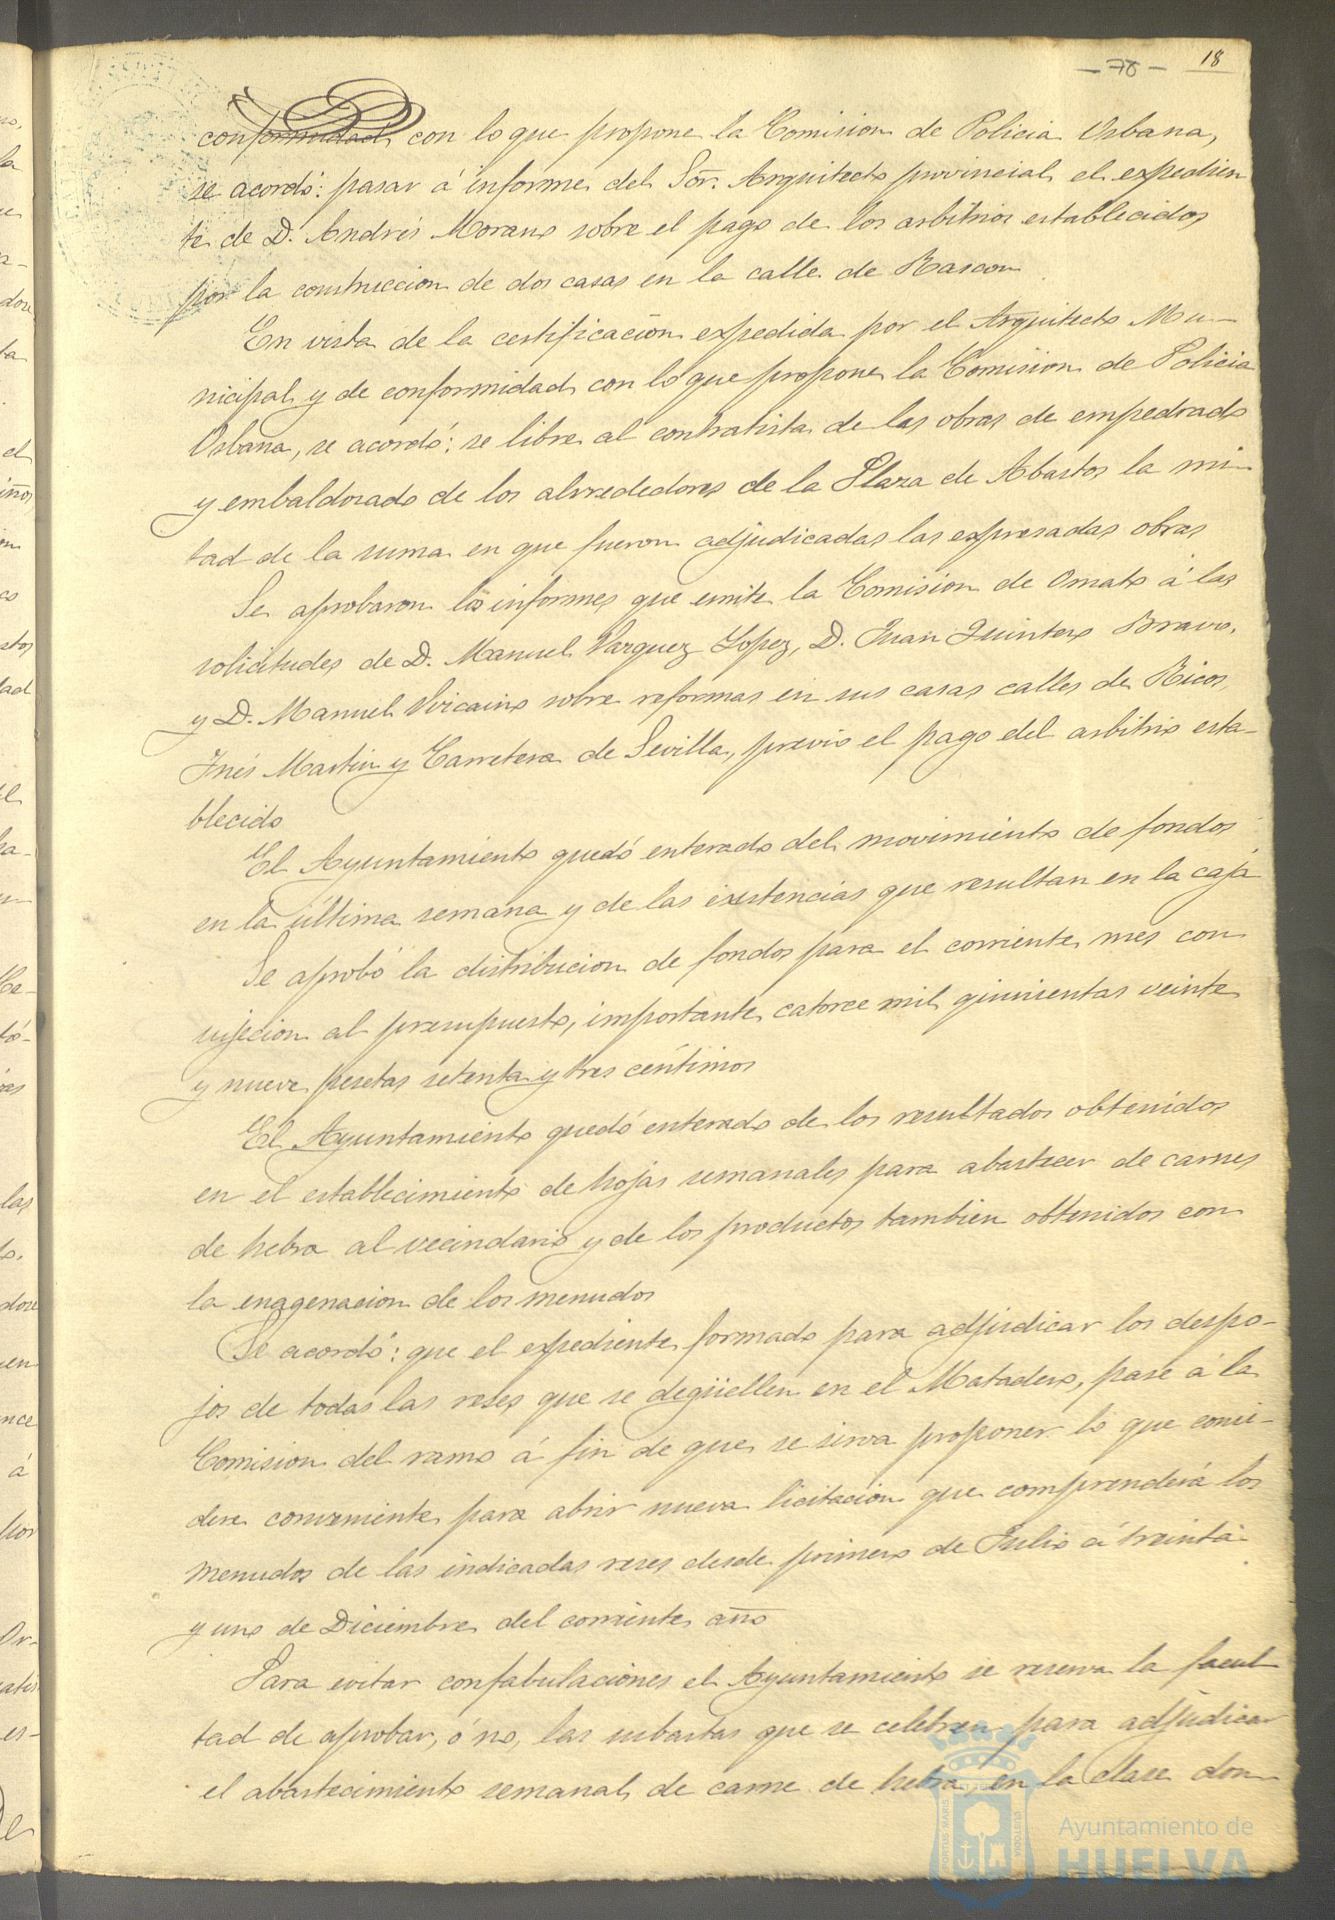 - 78 - 18
conformidad con lo que propone la Comision de Policia Urbana,
se acordó: pasar á informe del Sor. Arquitecto provincial el expedien
te de D. Andrés Morano sobre el pago de los arbitrios establecidos
por la construccion de dos casas en la calle de Rascon
En vista de la certificación expedida por el Arquitecto Mu-
nicipal y de conformidad con lo que propone la Comision de Policia
Urbana, se acordó: se libre al contratista de las obras de empedrado
y embaldosado de los alrrededores de la Plaza de Abastos la mi-
tad de la suma en que fueron adjudicadas las expresadas obras
Se aprobaron los informes que emite la Comision de Ornato á las
solicitudes de D. Manuel Vazquez Lopez, D. Juan Quintero Bravo,
y D. Manuel Vizcaino sobre reformas en sus casas calles de Ricos,
Inés Martin y Carretera de Sevilla, previo el pago del arbitrio esta-
blecido
El Ayuntamiento quedó enterado del movimiento de fondos
en la última semana y de las existencias que resultan en la caja
Se aprobó la distribucion de fondos para el corriente mes con
sujecion al presupuesto, importante catorce mil quinientas veinte
y nueve pesetas setenta y tres céntimos
El Ayuntamiento quedó enterado de los resultados obtenidos
en el establecimiento de hojas semanales para abastecer de carnes
de hebra al vecindario y de los productos tambien obtenidos con
la enagenacion de los menudos
Se acordó: que el expediente formado para adjudicar los despo-
jos de todas las reses que se degüellen en el Matadero, pase á la
Comision del ramo á fin de que se sirva proponer lo que consi-
dere conveniente para abrir nueva licitación que comprenderá los
menudos de las indicadas reses desde primero de Julio á treinta
y uno de Diciembre del corriente año
Para evitar confabulaciones el Ayuntamiento se reserva la facul
tad de aprobar, ó no, las subastas que se celebren para adjudicar
el abastecimiento semanal de carne de hebra en la clase don-
PORTUS MARIS
CUSTODIA
Ayuntamiento de
HUELVA